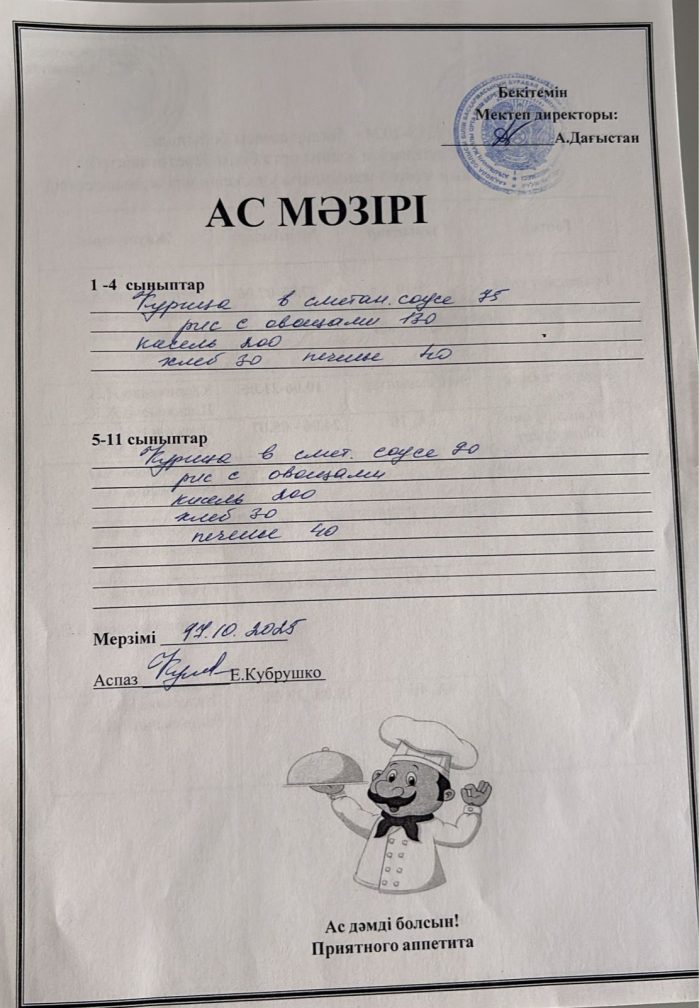 Бекітемін
Мектеп директоры:
А.Дағыстан
АС МӘЗІРІ
1 -4 сыныптар
Курица в сметан. соусе 75
рис с овощами 130
кисель 200
хлеб 30 печенье 40
5-11 сыныптар
Курица в смет. соусе 90
рис с овощами
кисель 200
хлеб 30
печенье 40
Мерзімі 97.10. 2025
Аспаз Е.Кубрушко
Ас дәмді болсын!
Приятного аппетита